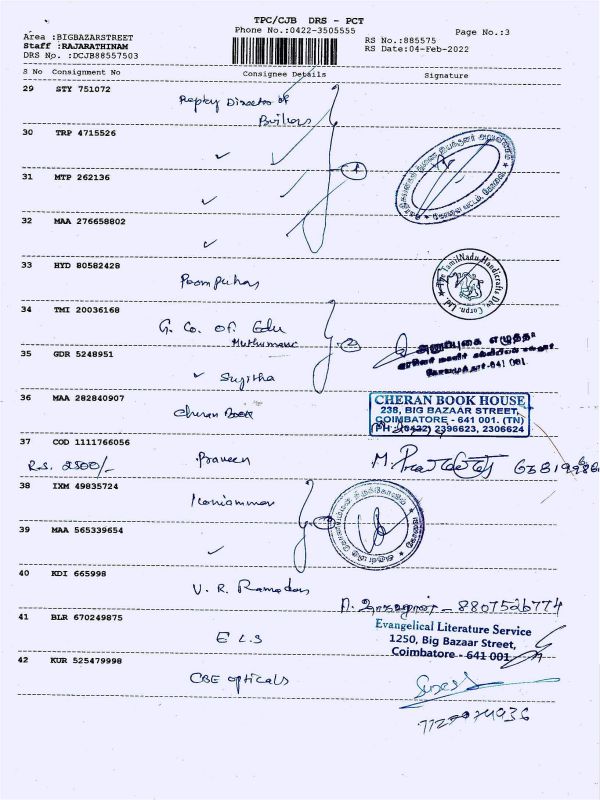 TPC/CJB DRS - PCT
Area :BIGBAZARSTREET
Phone No.:0422-3505555
Page No.:3
Staff :RAJARATHINAM
RS No.:885575
DRS No. :DCJB88557503
RS Date:04-Feb-2022
S No Consignment No Consignee Details Signature
29 STY 751072
Director of
30 TRP 4715526
31 MTP 262136
1
32 MAA 276658802
33 HYD 80582428
Poompuhar
The TamilNadu Handicrafts Dev. Corpn. Ltd.
34 TMI 20036168
G. Co. of. Edu
2
35 GDR 5248951
Sujitha
36 MAA 282840907
Cheran Book
CHERAN BOOK HOUSE
238, BIG BAZAAR STREET,
COIMBATORE - 641 001. (TN)
PH : (0422) 2396623, 2306624
37 COD 1111766056
Rs. 2500/-
Praveen
38 IXM 49835724
Koniamman
39 MAA 565339654
40 KDI 665998
V. R. Ramadas
8807526774
41 BLR 670249875
E L S
Evangelical Literature Service
1250, Big Bazaar Street,
Coimbatore - 641 001
42 KUR 525479998
CBE opticals